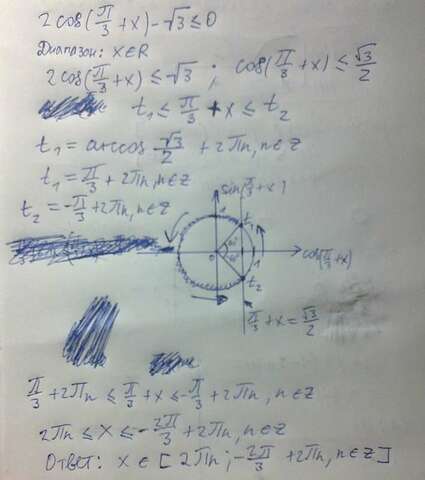 2cos(π/3 + x) - √3 ≤ 0
Диапазон: x∈R
2cos(π/3 + x) ≤ -√3 ; cos(π/3 + x) ≤ √3/2
t₁ ≤ π/3 + x ≤ t₂
t₁ = arccos √3/2 + 2πn, n∈Z
t₁ = π/3 + 2πn, n∈Z
t₂ = -π/3 + 2πn, n∈Z
sin(π/3 + x)
1
t₁
0
1
cos(π/3 + x)
t₂
π/3 + x = √3/2
π/3 + 2πn ≤ π/3 + x ≤ -π/3 + 2πn, n∈Z
2πn ≤ x ≤ -2π/3 + 2πn, n∈Z
Ответ: x ∈ [2πn; -2π/3 + 2πn, n∈Z]